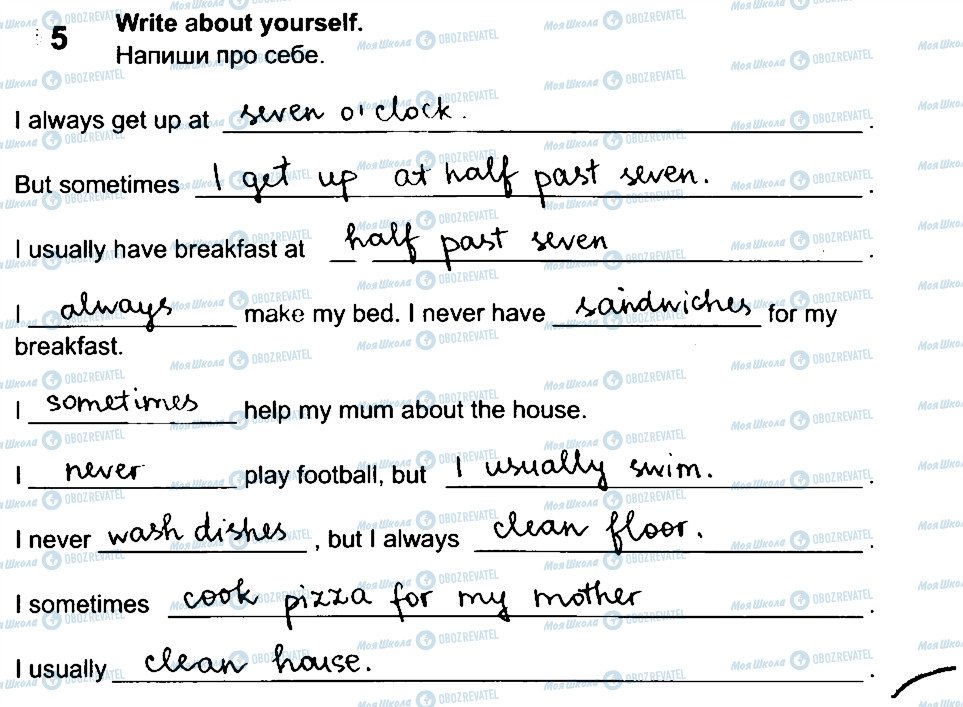 5 Write about yourself.
Напиши про себе.
I always get up at seven o'clock. .
But sometimes I get up at half past seven. .
I usually have breakfast at half past seven .
I always make my bed. I never have sandwiches for my
breakfast.
I sometimes help my mum about the house.
I never play football, but I usually swim. .
I never wash dishes , but I always clean floor. .
I sometimes cook pizza for my mother .
I usually clean house. .
Моя Школа OBOZREVATEL